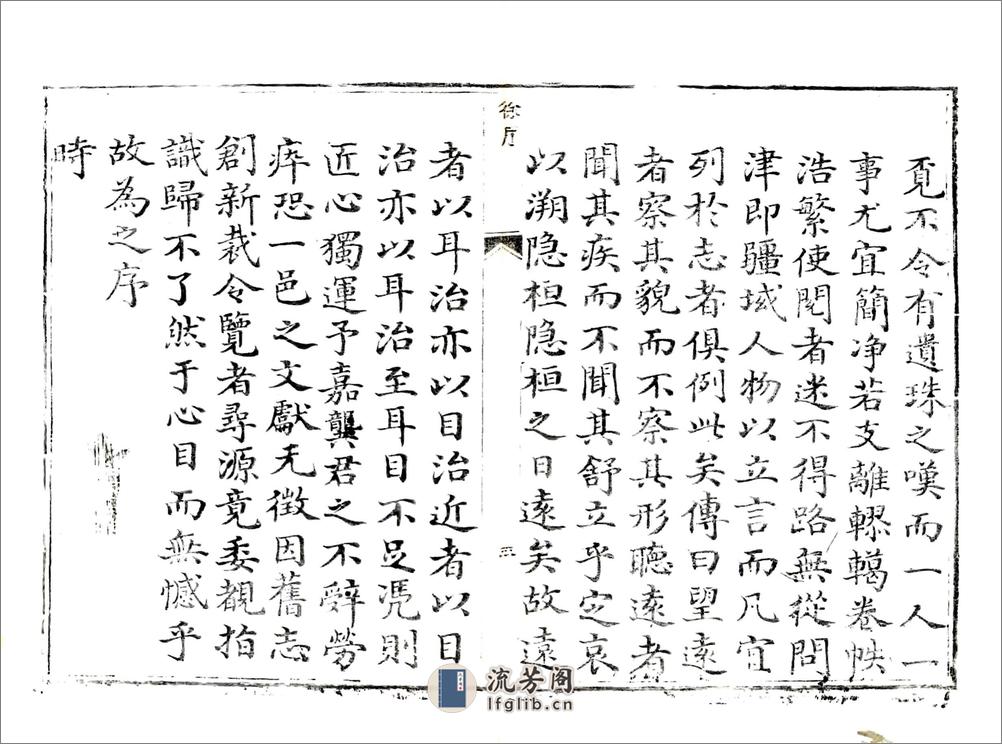 覔不令有遺珠之嘆而一人一
事尤宜簡净若支離轇轕卷帙
浩繁使閱者迷不得路無從問
津即疆域人物以立言而凡宜
列於志者俱例此矣傳曰望遠
者察其貌而不察其形聽遠者
聞其疾而不聞其舒立乎定哀
以溯隐桓隐桓之日遠矣故遠
徐序
五
者以耳治亦以目治近者以目
治亦以耳治至耳目不足凴則
匠心獨運予嘉龔君之不辝勞
瘁恐一邑之文獻无徵因舊志
創新裁令覽者尋源竟委覩指
識歸不了然于心目而無憾乎
故為之序
時
流芳阁
lfglib.cn